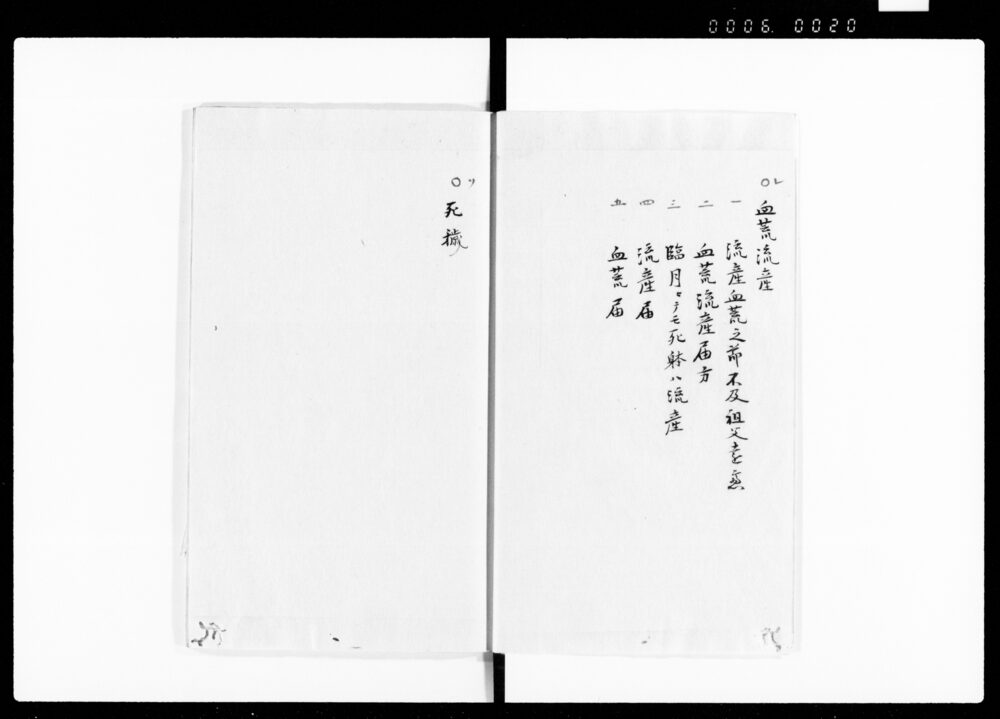 0006. 0020
○レ
血荒流産
一 流産血荒之節不及祖父を遠慮
二 血荒流産届方
三 臨月ニテモ死躰ハ流産
四 流産届
五 血荒届
○ソ
死穢